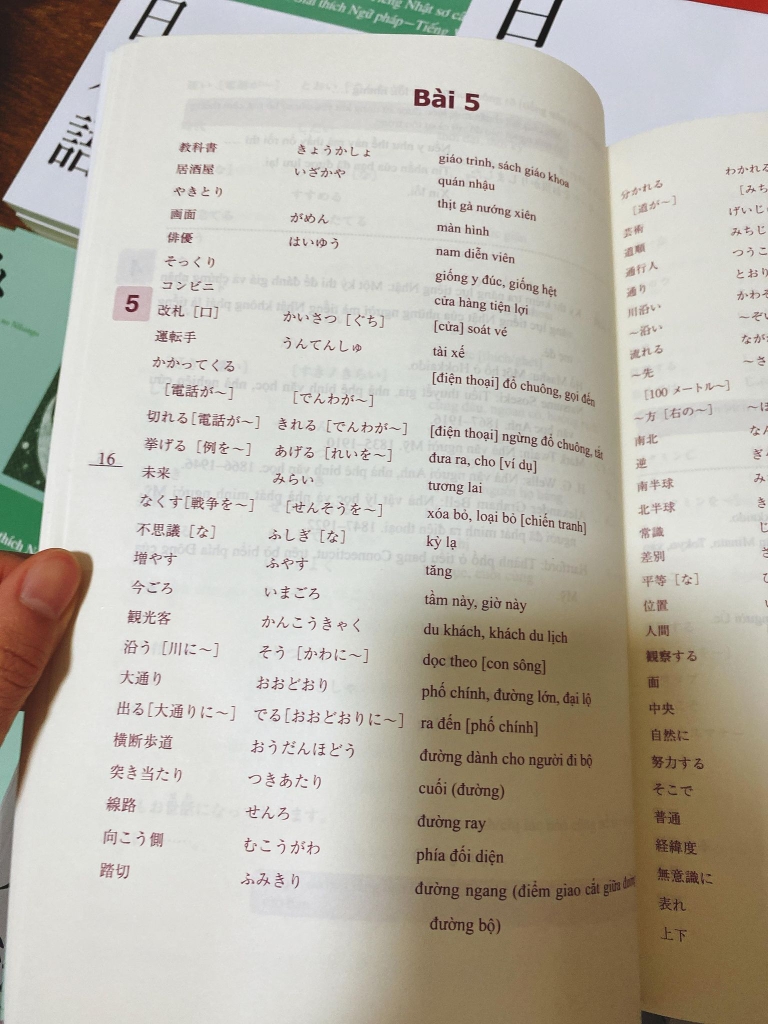 日
語
Tiếng Nhật sơ cấ
Giải thích Ngữ pháp—Tiếng
日
Bài 5
教科書 きょうかしょ giáo trình, sách giáo khoa
居酒屋 いざかや quán nhậu
やきとり thịt gà nướng xiên
画面 がめん màn hình
俳優 はいゆう nam diễn viên
そっくり giống y đúc, giống hệt
コンビニ cửa hàng tiện lợi
5
改札［口］ かいさつ［ぐち］ [cửa] soát vé
運転手 うんてんしゅ tài xế
かかってくる [điện thoại] đổ chuông, gọi đến
［電話が～］ ［でんわが～］
切れる［電話が～］ きれる［でんわが～］ [điện thoại] ngừng đổ chuông, tắt
挙げる［例を～］ あげる［れいを～］ đưa ra, cho [ví dụ]
16
未来 みらい tương lai
なくす［戦争を～］ ［せんそうを～］ xóa bỏ, loại bỏ [chiến tranh]
不思議［な］ ふしぎ［な］ kỳ lạ
増やす ふやす tăng
今ごろ いまごろ tầm này, giờ này
観光客 かんこうきゃく du khách, khách du lịch
沿う［川に～］ そう［かわに～］ dọc theo [con sông]
大通り おおどおり phố chính, đường lớn, đại lộ
出る［大通りに～］ でる［おおどおりに～］ ra đến [phố chính]
横断歩道 おうだんほどう đường dành cho người đi bộ
突き当たり つきあたり cuối (đường)
線路 せんろ đường ray
向こう側 むこうがわ phía đối diện
踏切 ふみきり đường ngang (điểm giao cắt giữa
đường bộ)
分かれる わかれる
［道が～］ ［みち
芸術 げいじ
道順 みちじ
通行人 つうこ
通り とおり
川沿い かわぞ
～沿い ～ぞい
流れる なが
～先 ～さ
［100メートル～］
～方［右の～］ ～ほ
南北 なん
逆 ぎ
南半球 み
北半球 き
常識 じ
差別 さ
平等［な］ び
位置 い
人間
観察する
面
中央
自然に
努力する
そこで
普通
経緯度
無意識に
表れ
上下